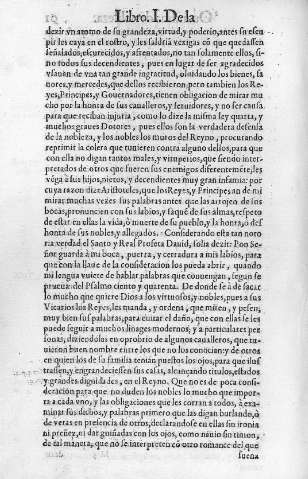 Libro. I. De la
dezir vn atomo de su grandeza, virtud, y poderio, antes su escu
pir les caya en el rostro, y les saldria vexigas cõ que quedassen
señalados, escurecidos, y afrentados, no tan solamente ellos, si
no todos sus decendientes, pues en lugar de ser agradecidos
vsauan de vna tan grande ingratitud, oluidando los bienes, fa
uores, y mercedes, que dellos recibieron pero tambien los Re-
yes, Principes, y Gouernadores, tienen obligacion de mirar mu
cho por la honra de sus caualleros, y seruidores, y no ser causa
para que reciban injuria, como lo dize la misma ley quarta, y
muchos graues Dotores, pues ellos son la verdadera defensa
de la nobleza, y los nobles los muros del Reyno, procurando
reprimir la colera que tuuieren contra alguno dellos, para que
con ella no digan tantos males, y vituperios, que siendo inter-
pretados de otros que fueren sus enemigos diferentemẽte, les
vẽga à sus hijos, nietos, y decendientes muy gran infamia: por
cuya razon dize Aristoteles, que los Reyes, y Principes an de mi
rar muchas vezes sus palabras antes que las arrojen de sus
bocas, pronuncien con sus labios, y saquẽ de sus almas, respeto
de estar en ellas la vida, ò muerte de su pueblo, y la honra, ò des
honra de sus nobles, y allegados. Considerando esta tan noto-
ria verdad el Santo y Real Profeta Dauid, solia dezir: Pon Se-
ñor guarda à mi boca, puerta, y cerradura a mis labios, para
que con la llaue de la consideracion los pueda abrir, quando
mi lengua vuiere de hablar palabras que conuengan, segun pa
rece del Psalmo ciento y quarenta. De donde se à de sacar
lo mucho que quiere Dios a los virtuosos, y nobles, pues a sus
Vicarios los Reyes, les manda, y ordena, que miren, y pesen,
muy bien sus palabras, para euitar el daño, que con ellas se les
puede seguir a muchos linages modernos, y a particulares per
sonas, diziendolas en oprobrio de algunos caualleros, que tu-
uieron buen nombre entre los que no los conocian, y de otros
en quien los de su familia tenian puestos los ojos, para que ilus
trassen, y engrandeciessen sus casas, alcançando titulos, estados
y grandes dignidades, en el Reyno. Que no es de poca consi-
deracion para que no duden los nobles lo mucho que impor-
ta a cada vno, y las obligaciones que les corran a todos, à exa-
minar sus dichos, y palabras primero que las digan burlando, ò
de veras en presencia de otros, declarandose en ellas sin ironia
ni preñez, ni dar guiñadas con los ojos, como nauio sin timon,
de tal manera, que no se interpreten cõ otro romance del que
suena